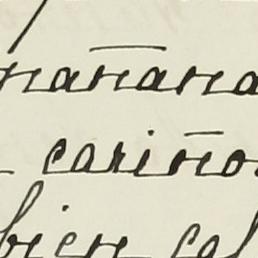 mañana
cariño
bien